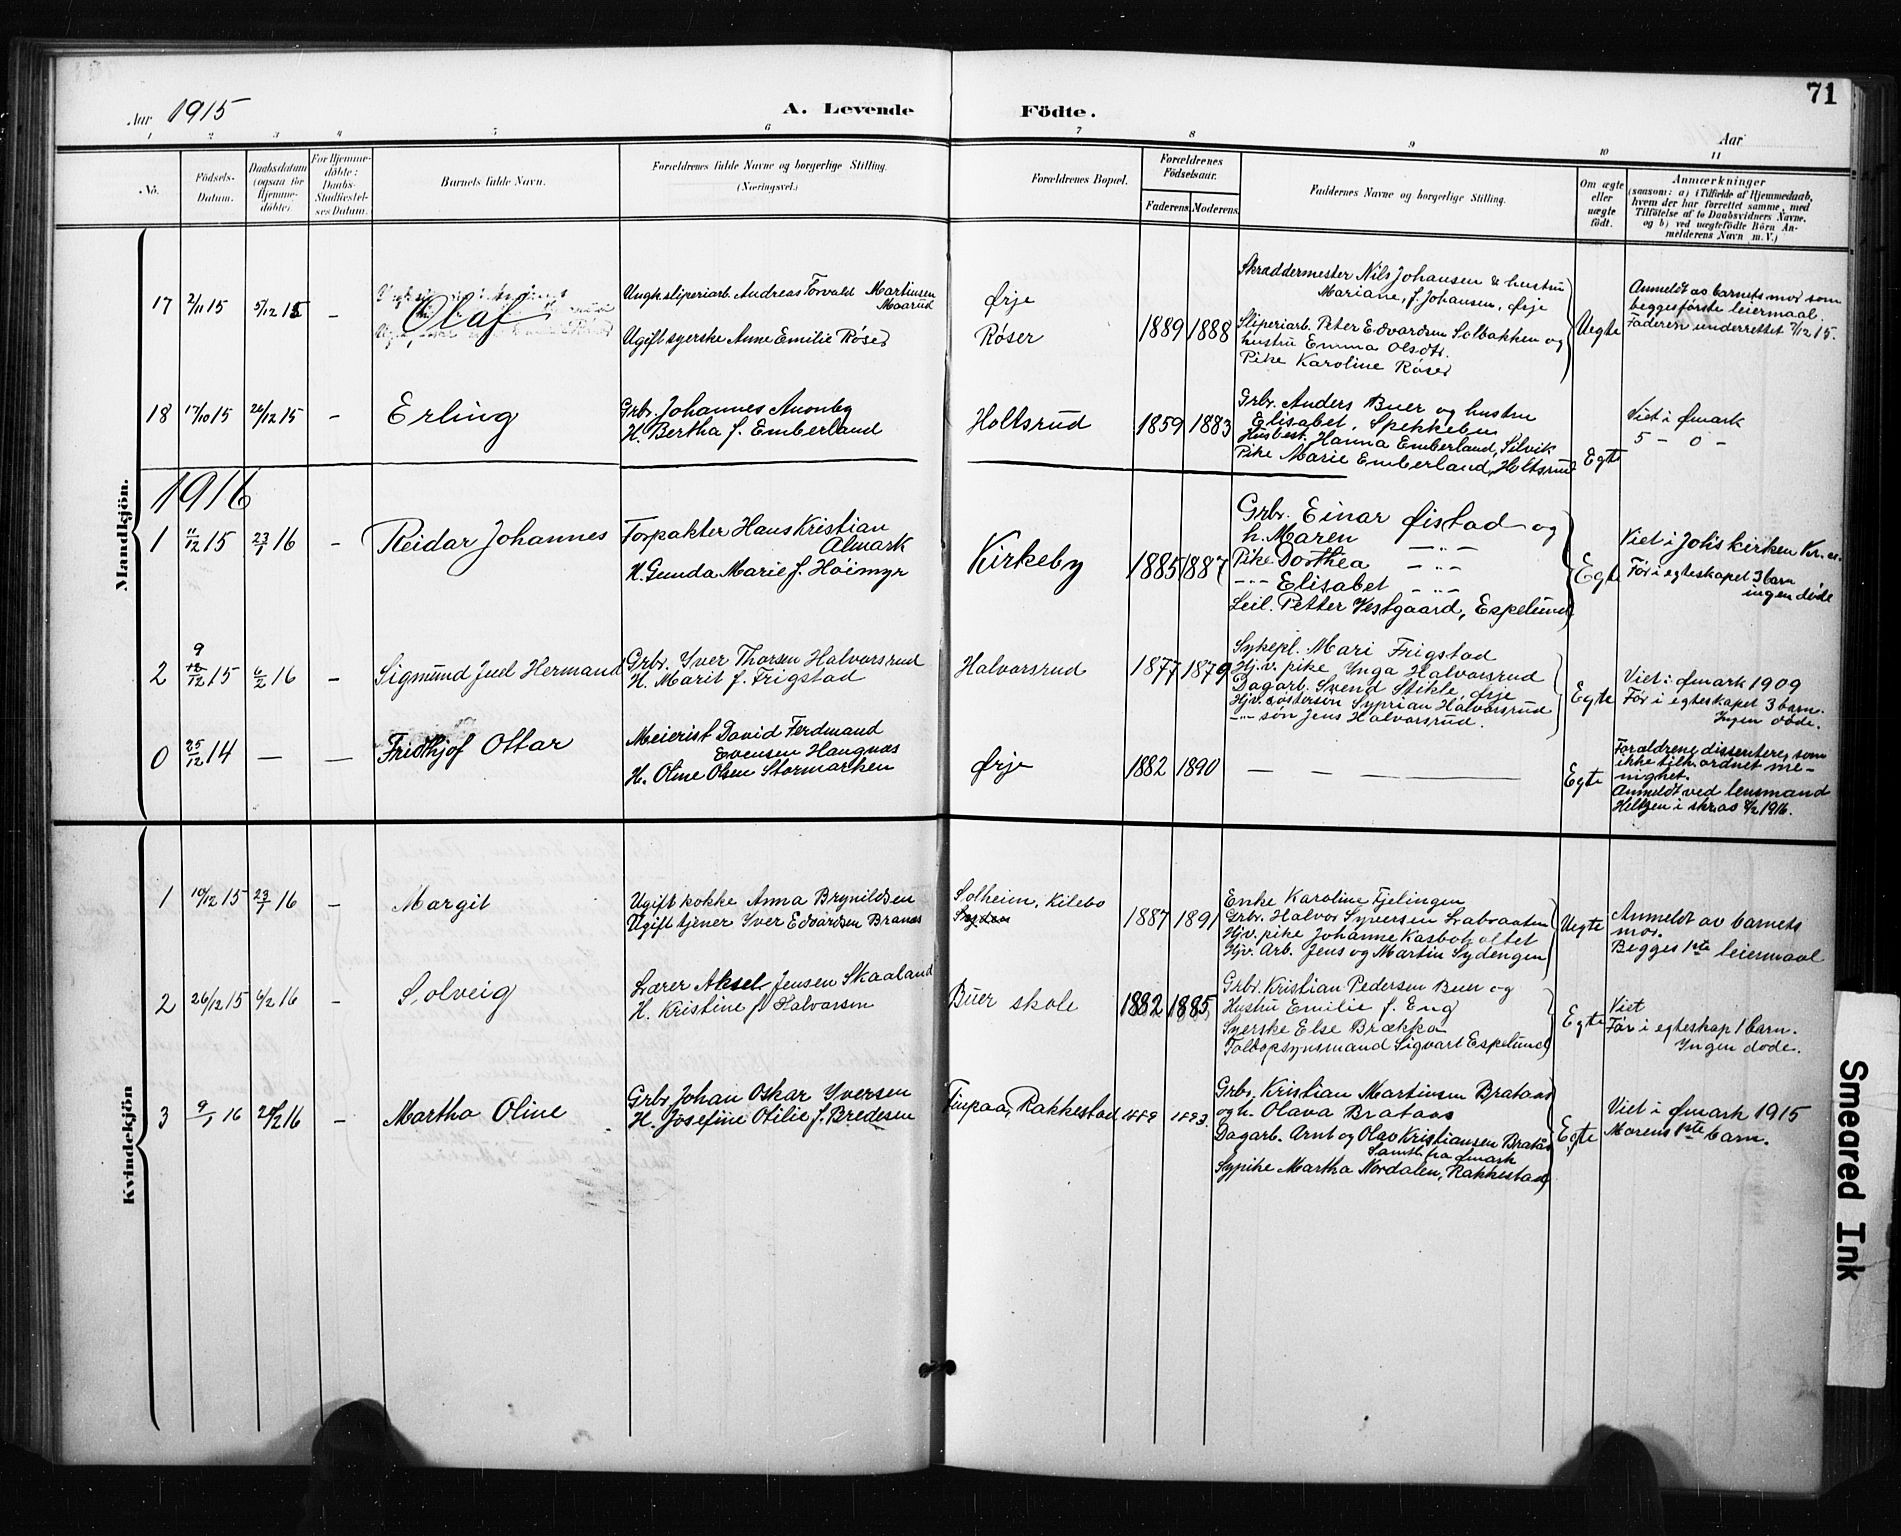 71
Aar 1915
A. Levende
Födte.
Aar
1 2 3 4 5 6 7 8 9 10 11
No.
Födsels-
Datum.
Daabsdatum
(ogsaa for
Hjemme-
döbte).
For Hjemme-
döbte:
Daabs-
Stadfæstel-
ses Datum.
Barnets fulde Navn.
Forældrenes fulde Navne og borgerlige Stilling.
(Næringsvei.)
Forældrenes Bopæl.
Forældrenes
Födselsaar.
Faderens. Moderens.
Faddernes Navne og borgerlige Stilling.
Om ægte
eller
uægte
födt.
Anmærkninger
(saasom: a) i Tilfælde af Hjemmedaab,
hvem der har forrettet samme, med
Tilföielse af to Daabsvidners Navne,
og b) ved uægtefödte Börn An-
melderens Navn m. V.)
Mandkjön.
17 2/11 15 5/12 15 -
Olaf
Ungk. sliperiarb. Andreas Torvald Martinsen
Maarud
Ugift syerske Anne Emilie Røser
Ørje
Røser
1889 1888
Skræddermester Nils Johansen & hustru
Mariane, f. Johansen, Ørje
Sliperiarb. Peter Edvardsen Solbakken og
hustru Emma Olsdtr.
Pike Karoline Røser
Uegte
Anmeldt av barnets mor som
begges første leiermaal.
Faderen underrettet 7/12 15.
18 17/10 15 26/12 15 -
Erling
Grbr. Johannes Anonby
H. Bertha f. Emberland
Holtsrud
1859 1883
Grbr. Anders Buer og hustru
Elisabet, Spekkeby
Husbest. Hanna Emberland, Silvik
Pike Marie Emberland, Holtsrud
Egte
Viet i Ømark
5 - 0 -
1916
1 11/12 15 23/1 16 -
Reidar Johannes
Forpakter Hans Kristian
Almark
H. Gunda Marie f. Høimyr
Kirkeby
1885 1887
Grbr. Einar Øistad og
h. Maren — " —
Pike Dorthea — " —
- " - Elisabet — " —
Leil. Petter Vestgaard, Espelund
Egte
Viet i Joh's kirken Kr.a.
Før i egteskapet 3 barn
ingen døde
2 9/12 15 6/2 16 -
Sigmund Juel Hermand
Grbr. Yver Thorsen Halvorsrud
H. Marit f. Frigstad
Halvorsrud
1877 1879
Sykepl. Mari Frigstad
Hjv. pike Ynga Halvorsrud
Dagarb. Svend Stikle, Ørje
Hjv. søsterson Syprian Halvorsrud
- " - søn Jens Halvorsrud.
Egte
Viet i Ømark 1909
Før i egteskapet 3 barn.
Ingen døde.
0 25/12 14 — —
Fridthjof Ottar
Meierist David Ferdinand
Evensen Haugnæs
H. Oline Olsen Stormarken
Ørje
1882 1890
— — —
Egte
Forældrene dissentere, som
ikke tilh. ordnet me-
nighet.
Anmeldt ved lensmand
Heltzen i skr. av 4/2 1916.
Kvindekjön
1 10/12 15 23/1 16 -
Margit
Ugift kokke Anna Brynildsen
Ugift tjener Yver Edvardsen Branæs
Solheim, Kilebo
1887 1891
Enke Karoline Tjelingen
Grbr. Halvor Syversen Labraaten
Hjv. pike Johanne Kasboholtet
Hjv. Arb. Jens og Martin Sydengen
Uegte
Anmeldt av barnets
mor.
Begges 1ste leiermaal
2 26/12 15 6/2 16 -
Solveig
Lærer Aksel Jensen Skaaland
H. Kristine f. Halvorsen
Buer skole
1882 1885
Grbr. Kristian Pedersen Buer og
Hustru Emilie f. Eng
Syerske Else Brække
Toldopsynsmand Sigvart Espelund
Egte
Viet
Før i egteskap 1 barn.
Ingen døde.
3 9/1 16 20/2 16 -
Martha Oline
Grbr. Johan Oskar Yversen
H. Josefine Otilie f. Bredesen
Finpaa, Rakkestad
1889 1893.
Grbr. Kristian Martinsen Brataas
og h. Olava Brataas
Dagarb. Arnt og Olav Kristiansen Bratås
Samtl. fra Ømark
Sypike Martha Nordalen, Rakkestad
Egte
Viet i Ømark 1915
Morens 1ste barn.
Smeared Ink